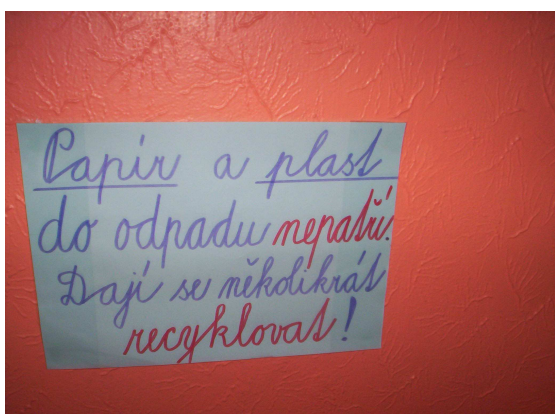 Papír a plast
do odpadu nepatří.
Dají se několikrát
recyklovat!